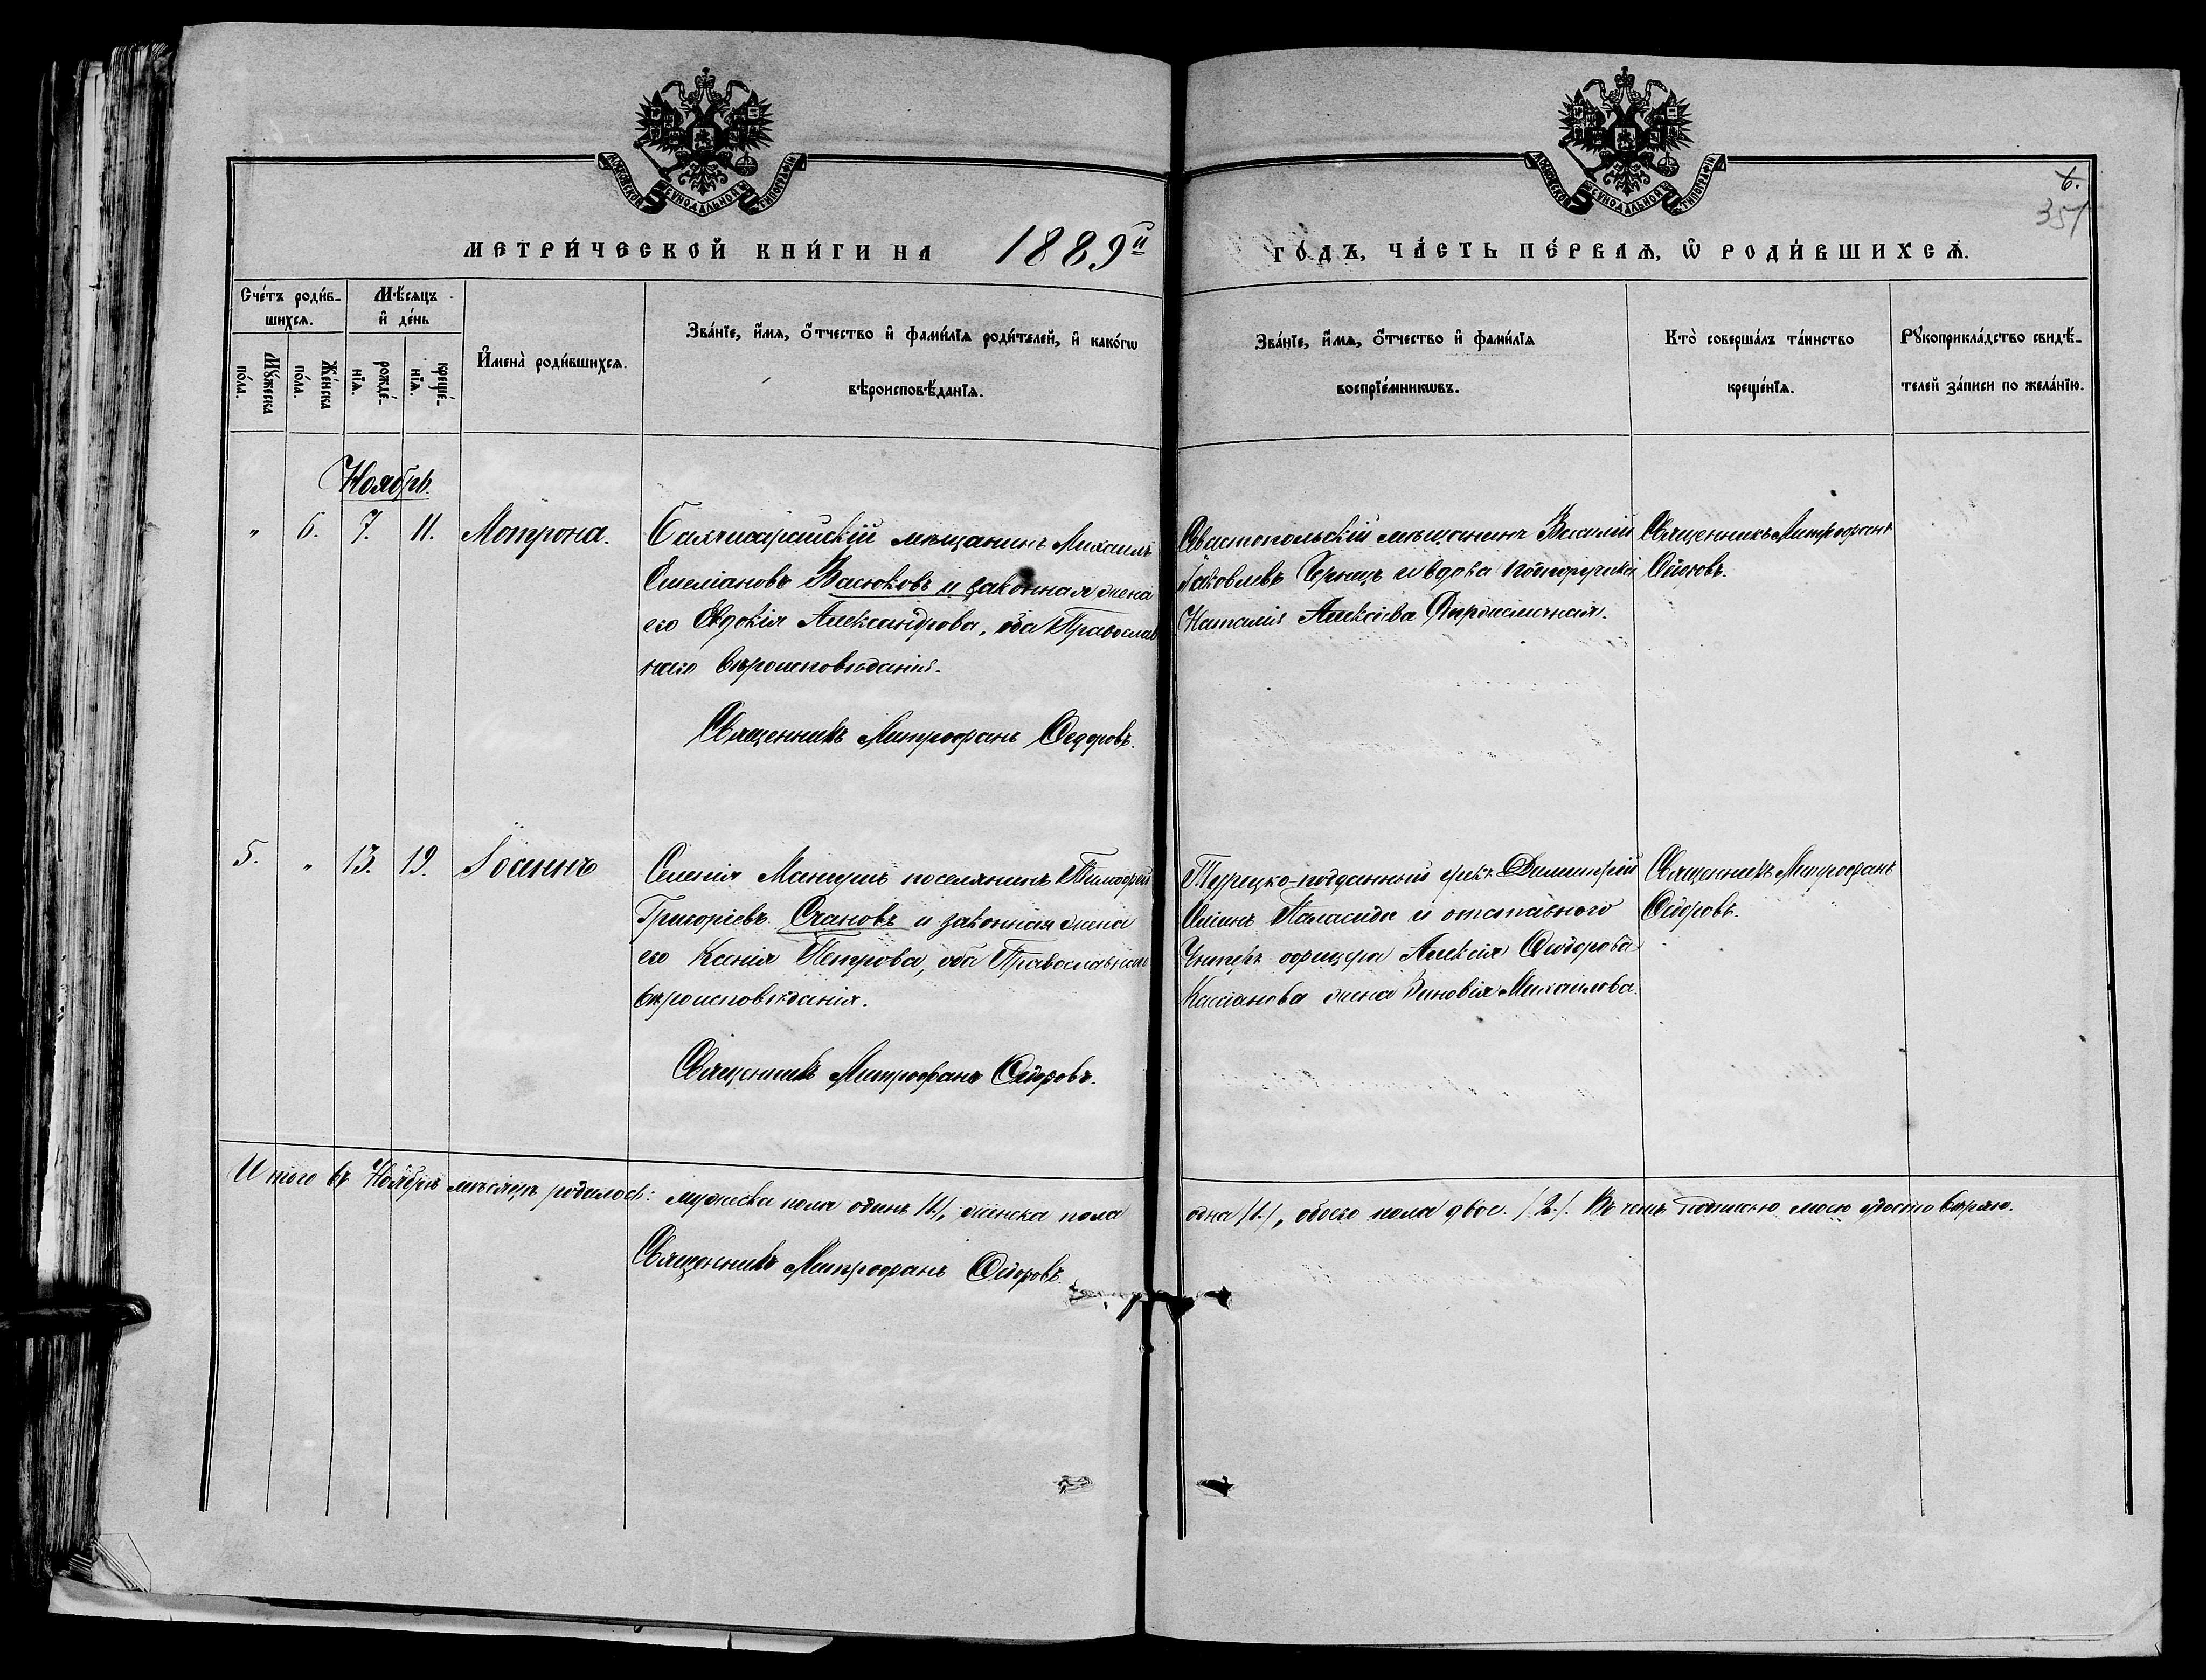 МОСКОВСКОЙ СѴНОДАЛЬНОЙ ТИПОГРАФІИ
МОСКОВСКОЙ СѴНОДАЛЬНОЙ ТИПОГРАФІИ
6.
357
МЕТРИ́ЧЕСКОЙ КНИ́ГИ НА 1889й ГО́ДЪ, ЧА́СТЬ ПЕ́РВАѦ, Ѽ РОДИ́ВШИХСѦ.
Сче́тъ роди́в-
шихсѧ.
Мꙋ́жеска
по́ла.
Же́нска
по́ла.
Мѣ́сѧцъ
и҆ де́нь
рожде́-
нїѧ.
креще́-
нїѧ.
И҆мена̀ роди́вшихсѧ.
Зва́нїе, и҆́мѧ, ѻ҆́тчество и҆ фами́лїѧ роди́телей, и҆ како́гѡ
вѣроисповѣ́данїѧ.
Зва́нїе, и҆́мѧ, ѻ҆́тчество и҆ фами́лїѧ
воспрїе́мникѡвъ.
Кто̀ соверша́лъ та́инство
креще́нїѧ.
Рꙋкоприкла́дство свидѣ́-
телей за́писи по жела́нїю.
Ноябрь.
" 6. 7. 11. Мотрона.
Бахчисарайскій мѣщанинъ Михаилъ
Емеліановъ Васюковъ и законная жена
его Евдокія Александрова, оба Православ
наго вѣроисповѣданія.
Священникъ Митрофанъ Ѳедоровъ.
Севастопольскій мѣщанинъ Василій
Яковлевъ Чернецъ и вдова
Наталія Алексѣева
Священникъ Митрофанъ
Ѳедоровъ.
5. " 13. 19. Іоаннъ
Селенія Мангушъ поселянинъ Тимофей
Григоріевъ Становъ и законная жена
его Ксенія Петрова, оба Православнаго
вѣроисповѣданія.
Священникъ Митрофанъ Ѳедоровъ.
Турецко-подданный грекъ Димитрій
и отставного
Унтеръ офицера Алексія Ѳеодорова
Кассіанова жена Зиновія Михаилова.
Священникъ Митрофанъ
Ѳедоровъ.
Итого въ Ноябрѣ мѣсяцѣ родилось: мужеска пола одинъ /1./, женска пола одна /1./, обоего пола двое. /2./. Въ чемъ подписью моею удостовѣряю.
Священникъ Митрофанъ Ѳедоровъ.